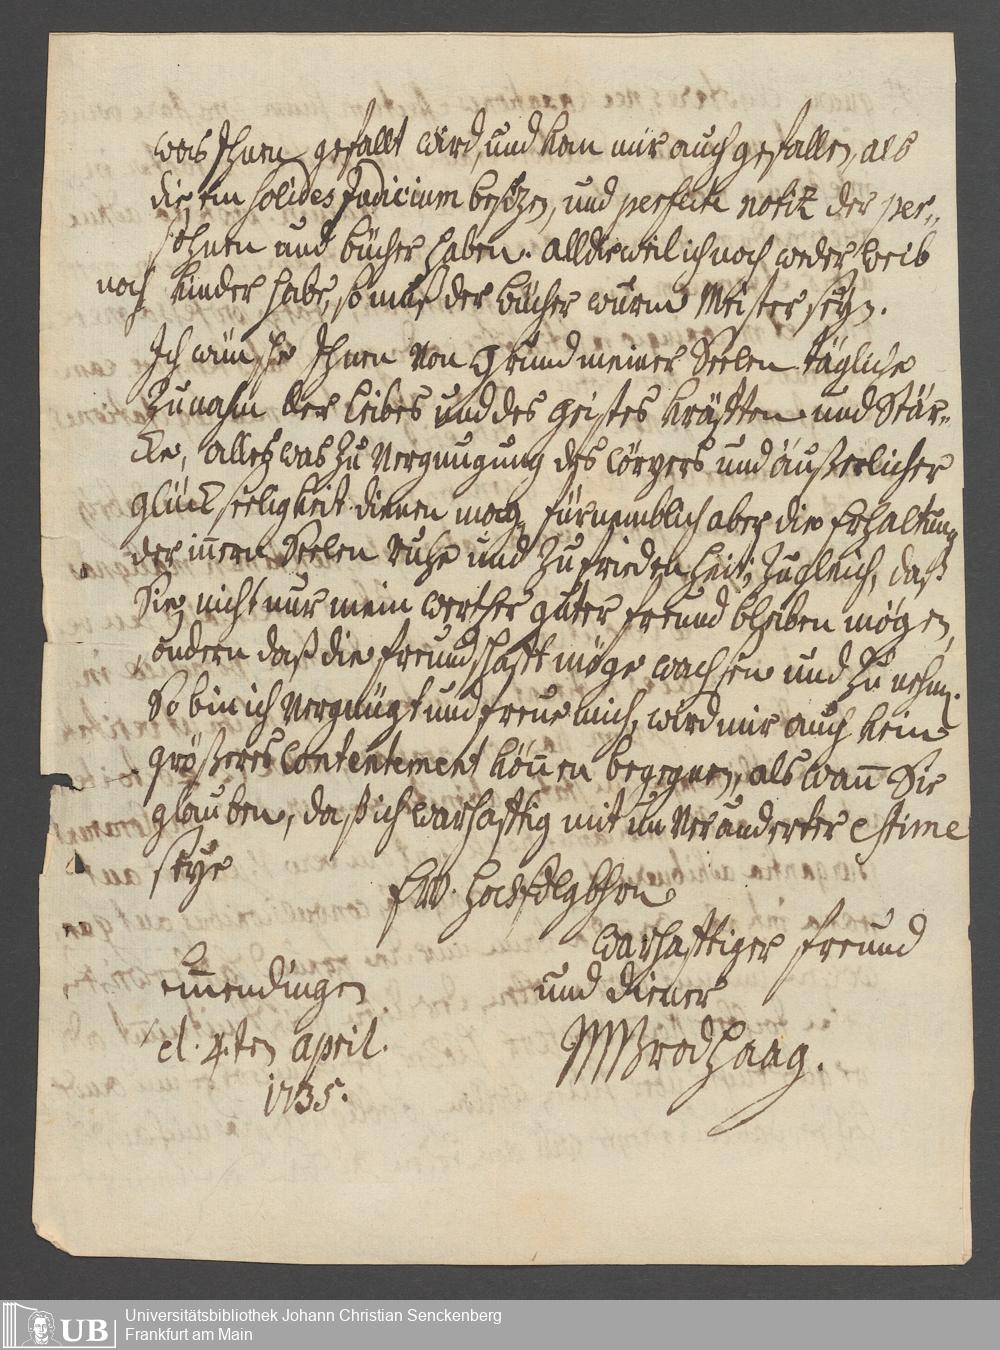 was Ihnen gefallt wird, und kan mir auch gefallen, als
die ein solides Judicium besitzen, und perfecte notiz der per„
sohnen und bücher haben. alldieweil ich noch weder weib
noch kinder habe, so muß der bücher wurm Meister seyn.
Ich wünsche Ihnen von grund meiner Seelen tägliche
Zunahm der leibes und des geistes kräfften und Stär„
cke, alles was zu vergnugung des Cörpers und äußerlicher
glückseeligkeit dienen mag, fürnemblich aber die Erhaltung
der iñern Seelen ruhe und Zufriedenheit, Zugleich, daß
Sie nicht nur mein werther guter freund bleiben mögen,
sondern daß die freundschafft möge wachsen und Zu nehmen.
So bin ich vergnügt und freue mich, wird mir auch kein
größeres Contentement köñen begegnen, als wañ Sie
glauben, daß ich warhafftig mit un veranderter estime
seye
Ew.
warhafftiger freund
und diener
Brodhaag.
emendingen
d. 4.ten april.
1735.
UB
Universitätsbibliothek Johann Christian Senckenberg
Frankfurt am Main